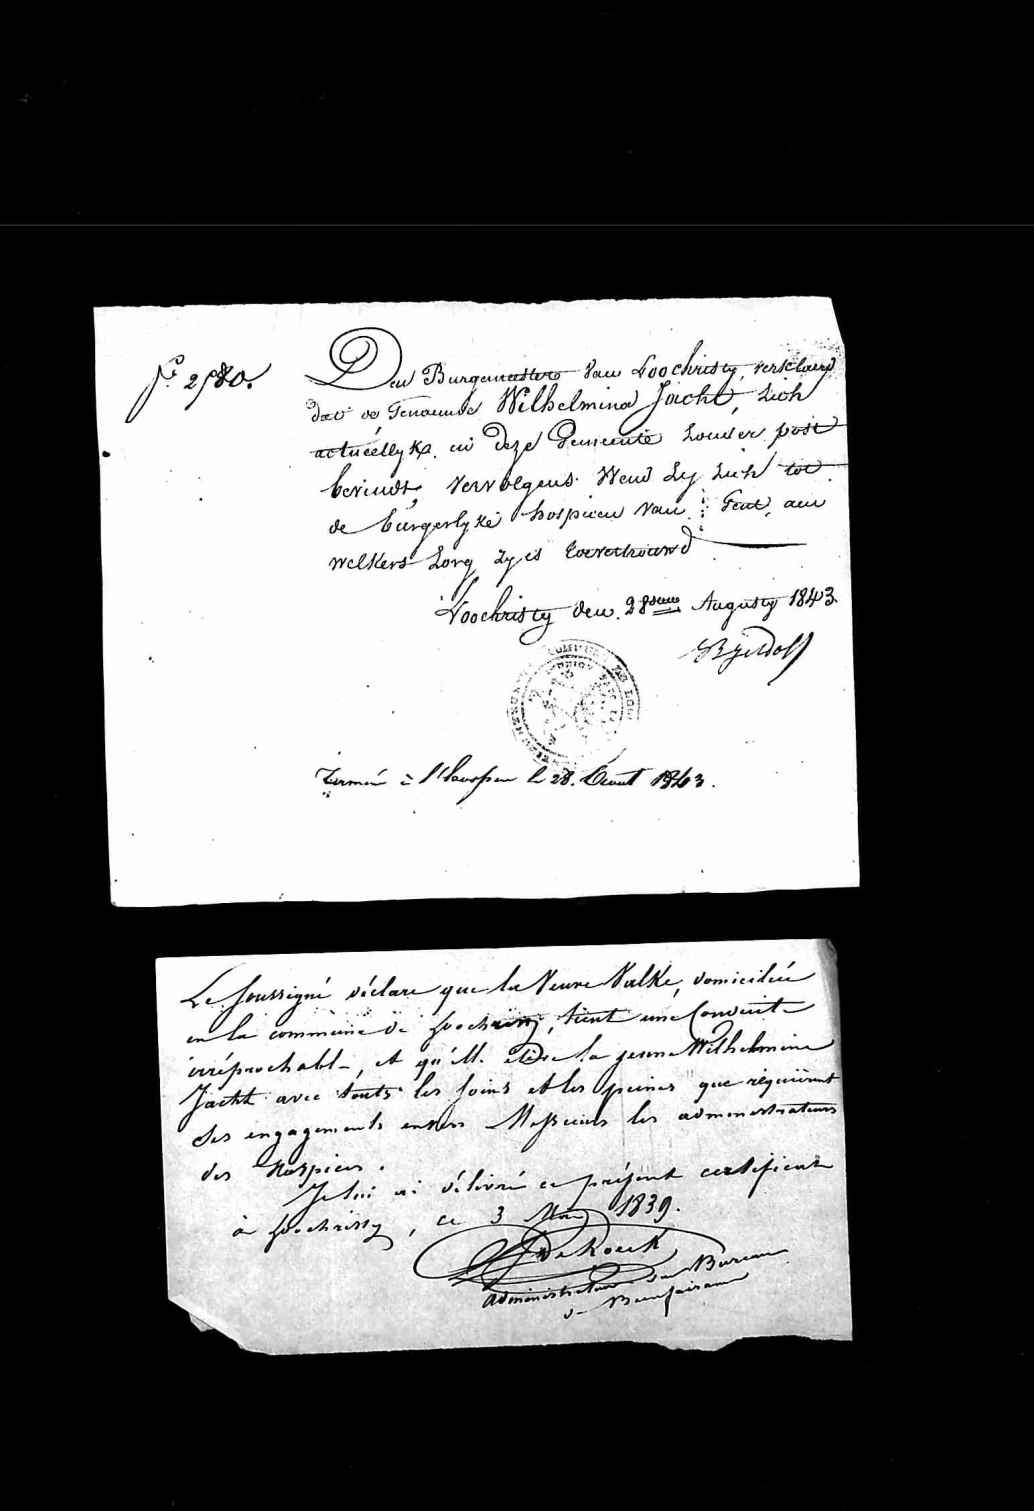 f° 2580.
Den Burgemeester van Loochristy, verklaerd
dat de Genaemde Wilhelmina Jacht, zich
actuéellyk in deze Gemeente zonder post
bevindt, vervolgens Wend zy zich tot
de burgerlyke hospicien van Gent, aen
welkers zorg zy is toevertrouwd
Loochristy den 28sten Augusty 1843.
à l'hospice le 28. Aout 1843.
Le soussigné déclare que la Veuve Valke, domiciliée
en la commune de Loochristy, tient une Conduite
irréprochable, et qu'elle élève la jeune Wilhelmine
Jacht avec touts les soins et les peines que réquièrent
ses engagements envers Messieurs les administrateurs
des Hospices.
Je lui ai délivré ce présent certificat
à Loochristy, ce 3 May 1839.
De Kock
administrateur du Bureau
de Bienfaisance